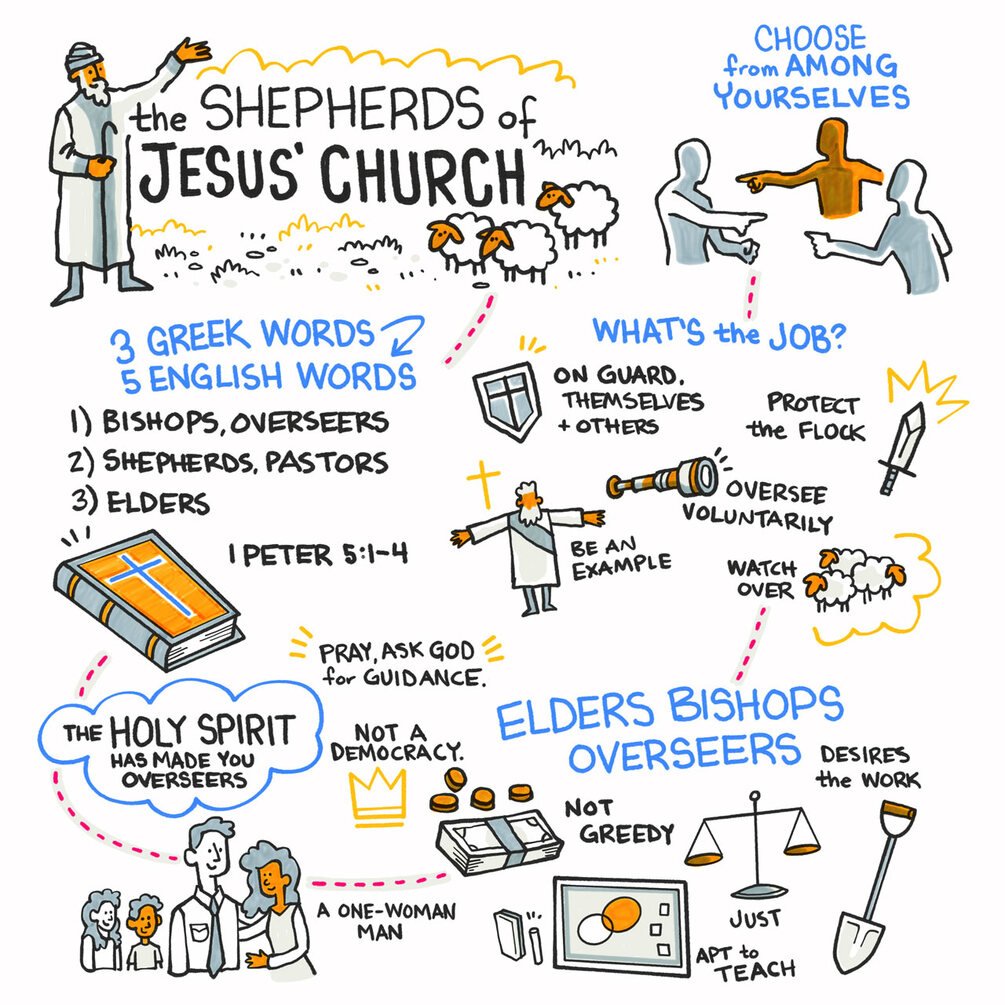 the SHEPHERDS of
JESUS' CHURCH
CHOOSE
from AMONG
YOURSELVES
3 GREEK WORDS
5 ENGLISH WORDS
1) BISHOPS, OVERSEERS
2) SHEPHERDS, PASTORS
3) ELDERS
1 PETER 5:1-4
WHAT'S the JOB?
ON GUARD,
THEMSELVES
+ OTHERS
PROTECT
the FLOCK
OVERSEE
VOLUNTARILY
BE AN
EXAMPLE
WATCH
OVER
PRAY, ASK GOD
for GUIDANCE.
THE HOLY SPIRIT
HAS MADE YOU
OVERSEERS
NOT A
DEMOCRACY.
ELDERS BISHOPS
OVERSEERS
DESIRES
the WORK
NOT
GREEDY
JUST
A ONE-WOMAN
MAN
APT to
TEACH